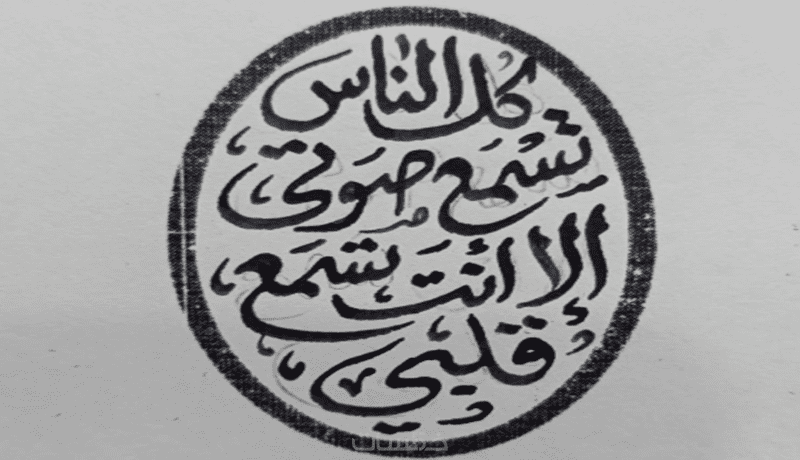 كل الناس
تسمع صوتي
إلا أنت تسمع
قلبي
خمسات